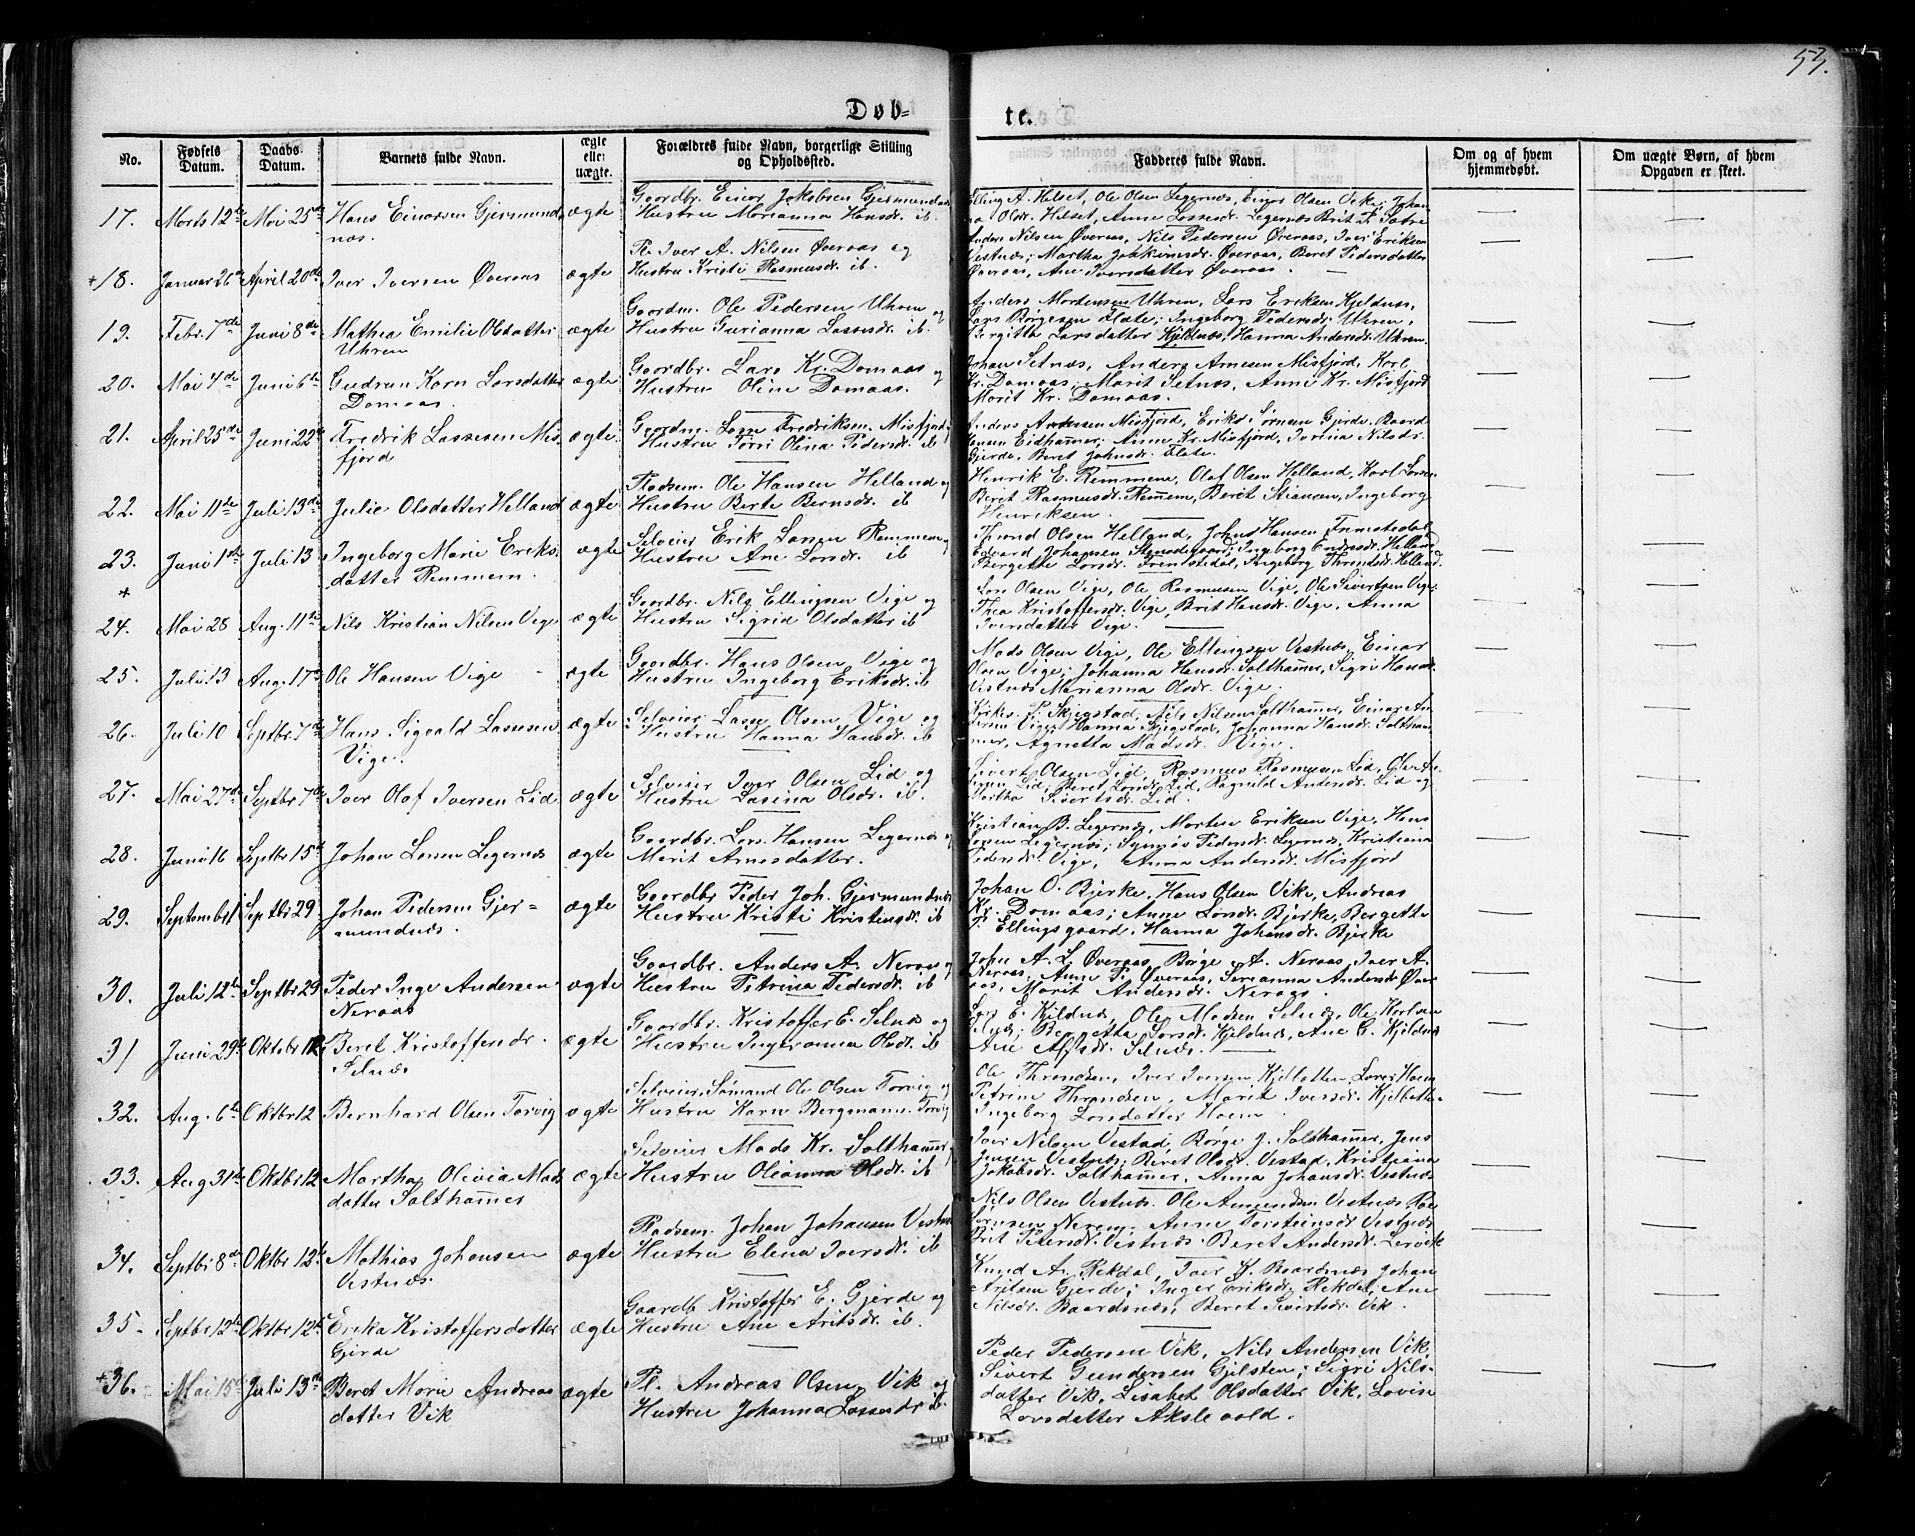 53.
Døb-
te.
No.
Fødsels Datum.
Daabs- Datum.
Barnets fulde Navn.
ægte eller uægte.
Forældres fulde Navn, borgerlige Stilling og Opholdssted.
Fadderes fulde Navn.
Om og af hvem hjemmedøbt.
Om uægte Børn, af hvem Opgaven er skeet.
17. Marts 12te Mai 25de Hans Einarsen Gjermund- ægte Gaardbr. Einar Jakobsen Gjermundnæs
næs. Hustru Marianna Hansdr. ib.
Elling A. Helset, Ole Olsen Legernes, Einar Olsen Vike, Johan
na Oldr. Helset, Anne Lassesdr. Legernæs Brit P. Sætre
+18. Januar 26de April 20de Iver Iversen Øveraas ægte Pl. Iver A. Nilsen Øveraas og
Hustru Kristi Rasmusdr. ib.
Anders Nilsen Øveraas, Nils Pedersen Øveraas, Iver Eriksen
Vestnæs; Martha Joakimsdr. Øveraas, Beret Pedersdatter
Øveraas, Ane Iversdatter Øveraas.
19. Febr. 7de Juni 8de Mathea Emilie Olsdatter ægte Gaardm. Ole Pedersen Uhren og
Uhren Hustru Gurianna Lassesdr. ib.
Anders Mortensen Uhren, Lars Eriksen Kjeldnæs,
Lars Børgesen Flate; Ingeborg Pedersdr. Uhren,
Bergitta Larsdatter Kjeldnæs, Hanna Andersdr. Uhren.
20. Mai 4de Juni 6te Gudrun Karn Larsdatter ægte Gaardbr. Lars Kr. Domaas og
Domaas. Hustru Oline Domaas.
Johan Setnæs, Anders Arnesen Misfjord, Karl
Kr. Domaas; Marit Setnæs, Anne Kr. Misfjord
Marit Kr. Domaas.
21. April 25de Juni 22de Fredrik Lassesen Mis- ægte Gaardm. Lasse Fredriksen Misfjord og
fjord Hustru Torri Olina Pedersdr. ib
Anders Andersen Misfjord, Eriks Sørensen Gjerde, Baard
Hansen Eidhammer; Anne Kr. Misfjord, Ivrina Nilsdr.
Gjerde, Beret Johnsdr. Flate.
22. Mai 11te Juli 13de Julie Olsdatter Helland ægte Pladsem. Ole Hansen Helland og
Hustru Berte Bernsdr. ib
Henrik E. Remmem, Olaf Olsen Helland, Karl Larsen
Beret Rasmusdr. Remem, Beret Stiansen, Ingeborg
Henriksen.
23. Juni 1ste Juli 13 Ingeborg Marie Eriks- ægte Selveier Erik Larsen Remmem og
datter Remmem. Hustru Ane Larsdr. ib
Thrond Olsen Helland, Johns Hansen Fremstedal
Edvard Johansen Stensdegaard; Ingeborg Endresdr. Helland
Bergette Larsdr. Fremstedal, Ingeborg Throndsdr. Helland.
+
24. Mai 28 Aug. 11te Nils Kristian Nilsen Vige ægte Gaardbr. Nils Ellingsen Vige og
Hustru Sigrid Olsdatter ib
Lars Olsen Vige, Ole Rasmusen Vige, Ole Sivertsen Vige,
Thea Kristoffersdr. Vige, Brit Hansdr. Vige, Anna
Iversdatter Vige.
25. Juli 13 Aug. 17de Ole Hansen Vige ægte Gaardbr. Hans Olsen Vige og
Hustru Ingeborg Eriksdr. ib
Mads Olsen Vige, Ole Ellingsen Vestnæs, Einar
Olsen Vige; Johanna Hansdr. Salthammer, Sigri Hansdr.
Vestnæs Marianna Olsdr. Vige.
26. Juli 10 Septbr. 7de Hans Sigvald Lassesen ægte Selveier Lasse Olsen Vige og
Vige. Hustru Hanna Hansdr. ib
Kirkes. P. Skjegstad, Nils Nilsen Salthammer, Einar An-
dersen Vige; Hanna Skjegstad, Johanna Hansdr. Saltham-
mer, Agnetta Madsdr. Vige.
27. Mai 27de Septbr. 7de Iver Olaf Iversen Lid ægte Selveier Iver Olsen Lid og
Hustru Lasina Olsdr. ib.
Sivert Olsen Lid, Rasmus Rasmusen Lid, Ole An-
dersen Lid; Beret Larsdr. Lid, Ragnild Andersdr. Lid og
Martha Sivertsdr. Lid.
28. Juni 16 Septbr 15de Johan Larsen Legernæs ægte Gaardbr. Lars Hansen Legernæs og
Marit Arnesdatter.
Kristian B. Legernæs, Morten Eriksen Vige, Hans
Larsen Legernæs; Synnøv Pedersdr. Legernæs, Kristiana
Pedersdr. Vige, Anna Andersdr. Misfjord
29. Septembr 1 Septbr 29 Johan Pedersen Gjer- ægte Gaardbr Peder Joh. Gjermundnæs
mundnæs. Hustru Kristi Kristensdr. ib
Johan O. Bjerke, Hans Olsen Vike, Andreas
Kr. Domaas; Anne Larsdr. Bjerke, Bergette
P. Ellingsgaard, Hanna Johansdr. Bjerke
30. Juli 12te Septbr 29 Peder Inge Andersen ægte Gaardbr. Anders A. Neraas og
Neraas Hustru Petrina Pedersdr. ib
John A. L. Øveraas, Børge A. Neraas, Iver A.
Neraas, Anne P. Øveraas, Serianna Andersdr. Øver
aas, Marit Andersdr. Neraas.
31 Juni 29de Oktobr 12 Beret Kristoffersdr. ægte Gaardbr. Kristoffer E. Selnæs og
Selnæs Hustru Ingeranna Olsdr. ib
Lars E. Kjeldnæs, Ole Madsen Selnæs, Ole Karlsen
Selnæs; Bergetta Larsdr. Kjeldnæs, Ane C. Kjeldnæs
Ane Alfsdr. Selnæs.
32. Aug. 6te Oktbr 12 Bernhard Olsen Torvig ægte Selveier, Sømand Ole Olsen Torvig og
Hustru Karn Bergmann. Torvig
Ole Throndsen, Iver Iversen Kjelbotten, Lars Hoem
Petrine Throndsen, Marit Iversdr. Kjelbotten
Ingeborg Larsdatter Hoem.
33. Aug 31te Oktbr 12 Martha Olivia Mads ægte Selveier Mads Kr. Salthammer
datter Salthammer Hustru Olianna Olsdr. ib
Iver Nilsen Vestad, Børge J. Salthammer, Jens
Jensen Vestnæs; Beret Olsdr. Vestad, Kristiana
Jakobsdr. Salthammer, Anna Johansdr. Vestnæs
34. Septbr 8de Oktbr 12te Mathias Johansen ægte Pladsem. Johan Johansen Vestnæs
Vestnæs. Hustru Elena Iversdr. ib
Nils Olsen Vestnæs, Ole Amundsen Vestnæs
Sørnsen Nerem; Anne Torsteinsdr. Vestnæs
Brit Petersdr. Vestnæs. Beret Andersdr. Lervik
35. Septbr 12te Oktbr 12te Erika Kristoffersdatter ægte Gaardb Kristoffer E. Gjerde og
Gjerde Hustru Ane Aritsdr. ib.
Knud A. Rekdal, Iver K. Baardsnæs Johan
Aritsen Gjerde; Inger Eriksdr. Rekdal, Ane
Nilsdr. Baardsnæs, Beret Sivertsdr. Vik.
+36. Mai 15de Juli 13de Beret Marie Andreas ægte Pl. Andreas Olsen Vik og
datter Vik Hustru Johanna Lassesdr ib.
Peder Pedersen Vik, Nils Andersen Vik,
Sivert Gundersen Gjelsten; Sigri Nils-
datter Vik, Lisabet Olsdatter Vik, Lovise
Larsdatter Akslevold.